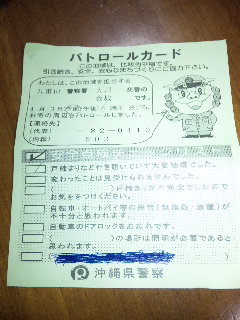 パトロールカード
この地域は、比較的平穏です。
引き続き、安全、安心なまちづくりにご協力下さい。
わたしは、このお宅を担当する
八重山 警察署 交番の
です。
4月 3日
お宅の周辺をパトロールしました。
【連絡先】
(代表) -82-0110
(内線) 502
戸締まりなどが行き届いていて大変結構でした。
変わったことは見受けられませんでした。
( )戸締まりが不完全でしたので
お気をつけください。
自転車・オートバイ等の保管(無施錠・放置)が
不十分と思われます。
自動車のドアロックをお忘れです。
( )の場所は照明が必要であると
思われます。
沖縄県警察